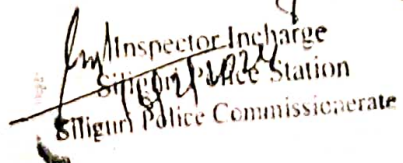 Inspector Incharge
Siliguri Police Station
Siliguri Police Commissionerate